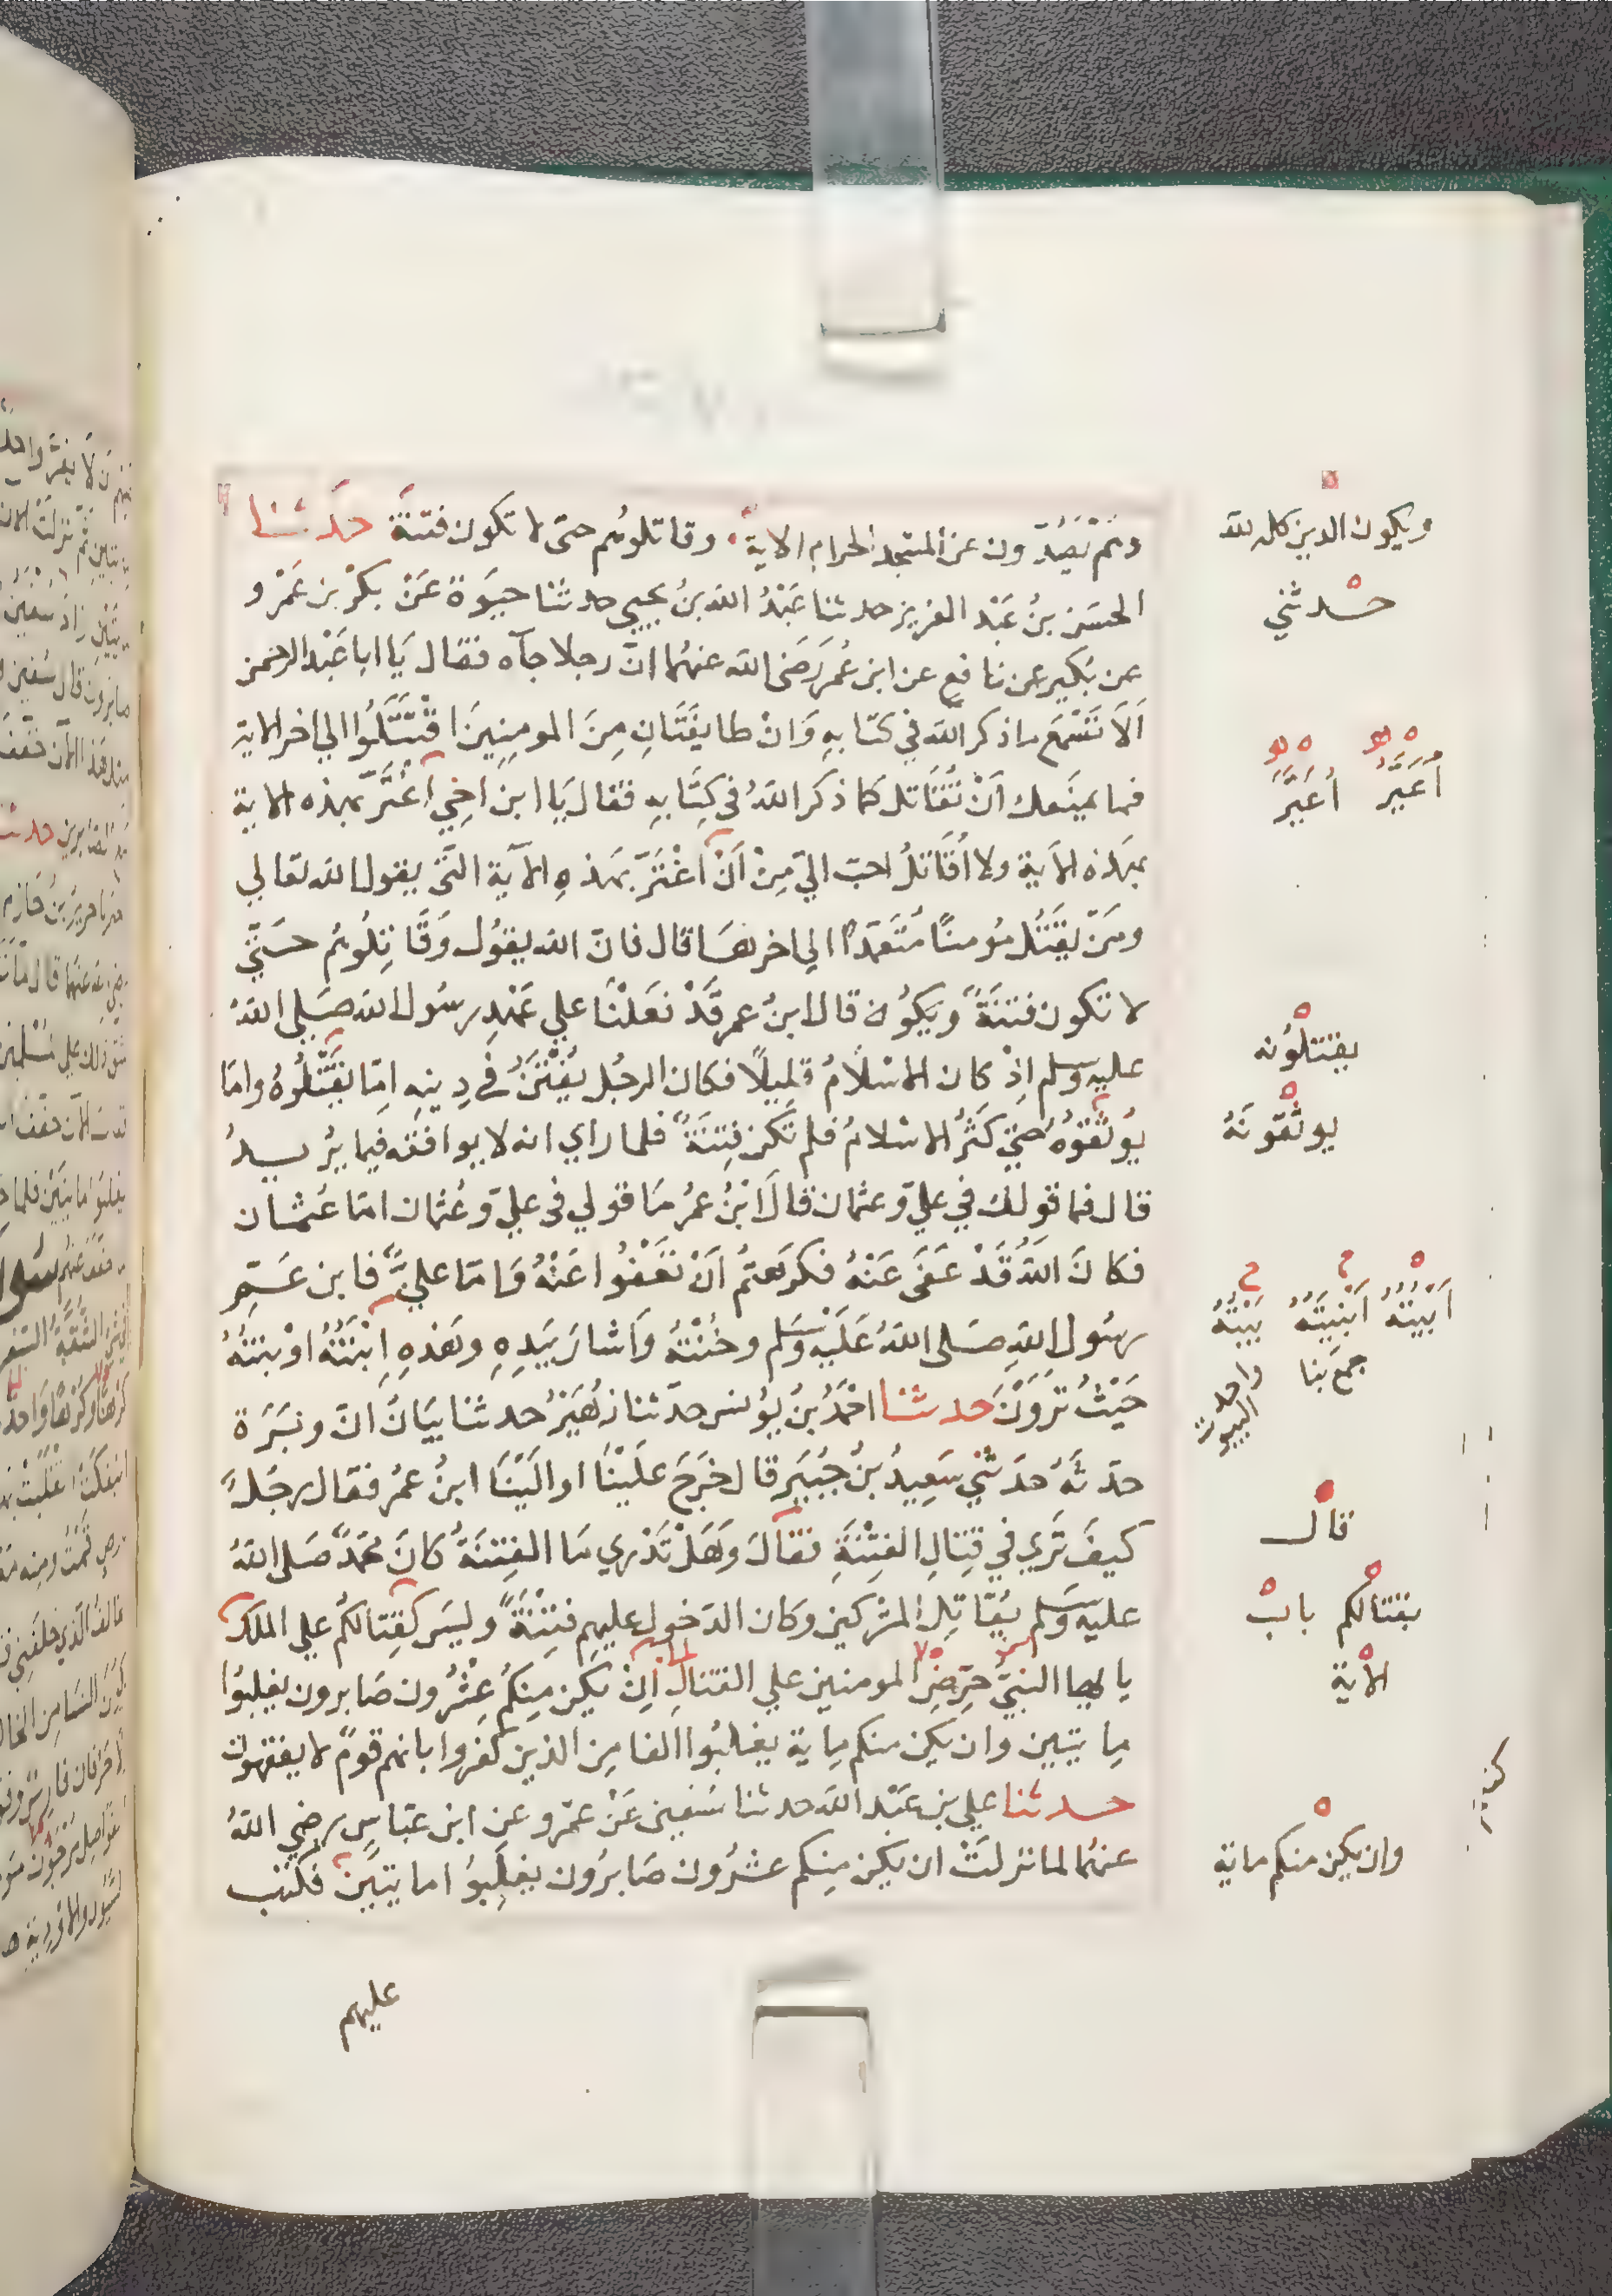 وهم يصدون عن المسجد الحرام الاية وقاتلوهم حتى لا تكون فتنة حدثنا
الحسن بن عبد العزيز حدثنا عبد الله بن يحيي حدثنا حيوة عن بكر بن عمرو
عن بكير عن نافع عن ابن عمر رضى الله عنهما ان رجلا جآه فقال يا ابا عبد الرحمن
الا تسمع ما ذكر الله في كتابه وان طايفتان من المومنين اقتتلوا الي اخر الاية
فما يمنعك ان تقاتل كما ذكر الله في كتابه فقال يا ابن اخي اغتر بهذه الاية
بهذه الاية ولا اقاتل احب الي من ان اغتر بهذه الآية التي يقول الله تعالي
ومن يقتل مومنا متعمدا الي اخرها قال فان الله يقول وقاتلوهم حتي
لا تكون فتنة ويكون قال ابن عمر قد فعلنا علي عهد رسول الله صلي الله
عليه وسلم اذ كان الاسلام قليلا فكان الرجل يفتن في دينه اما يقتلوه واما
يوثقوه حتي كثر الاسلام فلم تكن فتنة فلما راي انه لا يوافقه فيما يريد
قال فما قولك في علي وعثمان قال ابن عمر ما قولي في علي وعثمان اما عثمان
فكان الله قد عفى عنه فكرهتم ان تعفوا عنه واما علي فابن عم
رسول الله صلى الله عليه وسلم وختنه واشار بيده وهذه ابنته او بنته
حيث ترون حدثنا احمد بن يونس حدثنا زهير حدثنا بيان ان وبرة
حدثه حدثني سعيد بن جبير قال خرج علينا او الينا ابن عمر فقال رجل
كيف تري في قتال الفتنة فقال وهل تدري ما الفتنة كان محمد صلى الله
عليه وسلم يقاتل المشركين وكان الدخول عليهم فتنة وليس كقتالكم علي الملك
يا ايها النبي حرض المومنين علي القتال ان يكن منكم عشرون صابرون يغلبوا
مايتين وان يكن منكم ماية يغلبوا الفا من الذين كفروا بانهم قوم لا يفقهون
حدثنا علي بن عبد الله حدثنا سفين عن عمرو عن ابن عباس رضي الله
عنهما لما نزلت ان يكن منكم عشرون صابرون يغلبوا مايتين فكتب
عليهم
ويكون الدين كله لله
حدثني
أعير أعير
يقتلونه
يوثقونه
ابيته ابنيته بيته
جمع بنا واحد البيوت
قال
بقتالكم باب
الاية
وان يكن منكم ماية